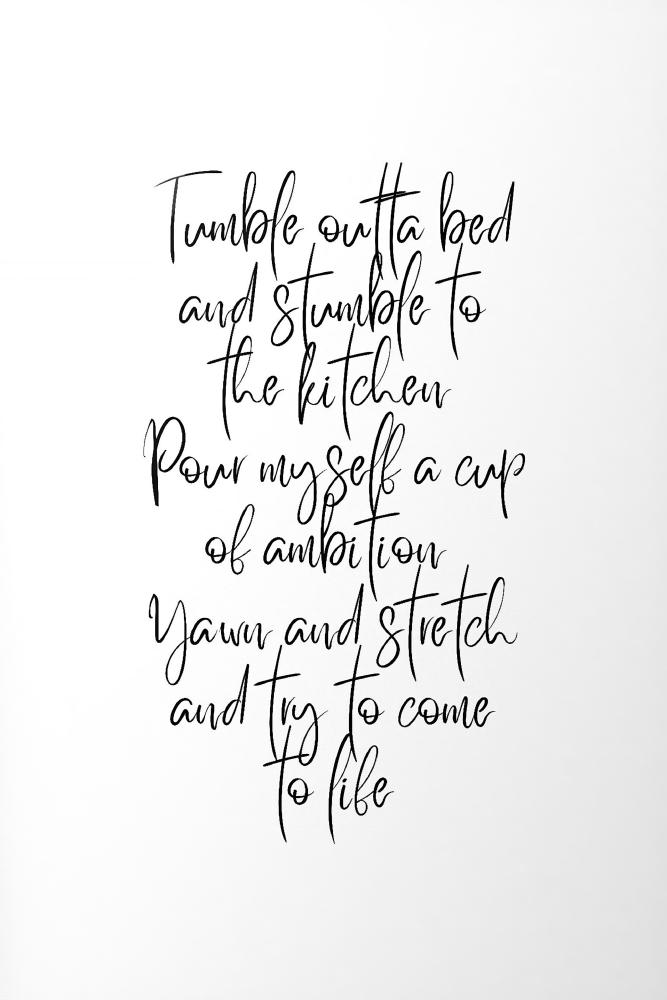 Tumble outta bed
and stumble to
the kitchen
Pour myself a cup
of ambition
Yawn and stretch
and try to come
to life